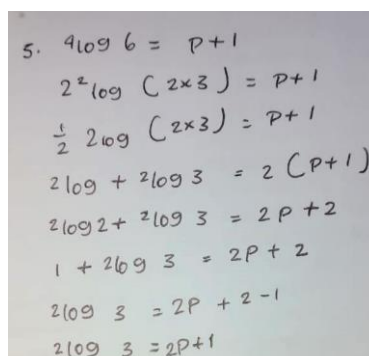 5. 4log 6 = P+1
2²log (2x3) = P+1
1/2 2log (2x3) = P+1
2log + ²log 3 = 2 (P+1)
2log2 + ²log 3 = 2P+2
1 + 2log 3 = 2P + 2
2log 3 = 2P + 2-1
2log 3 = 2P+1